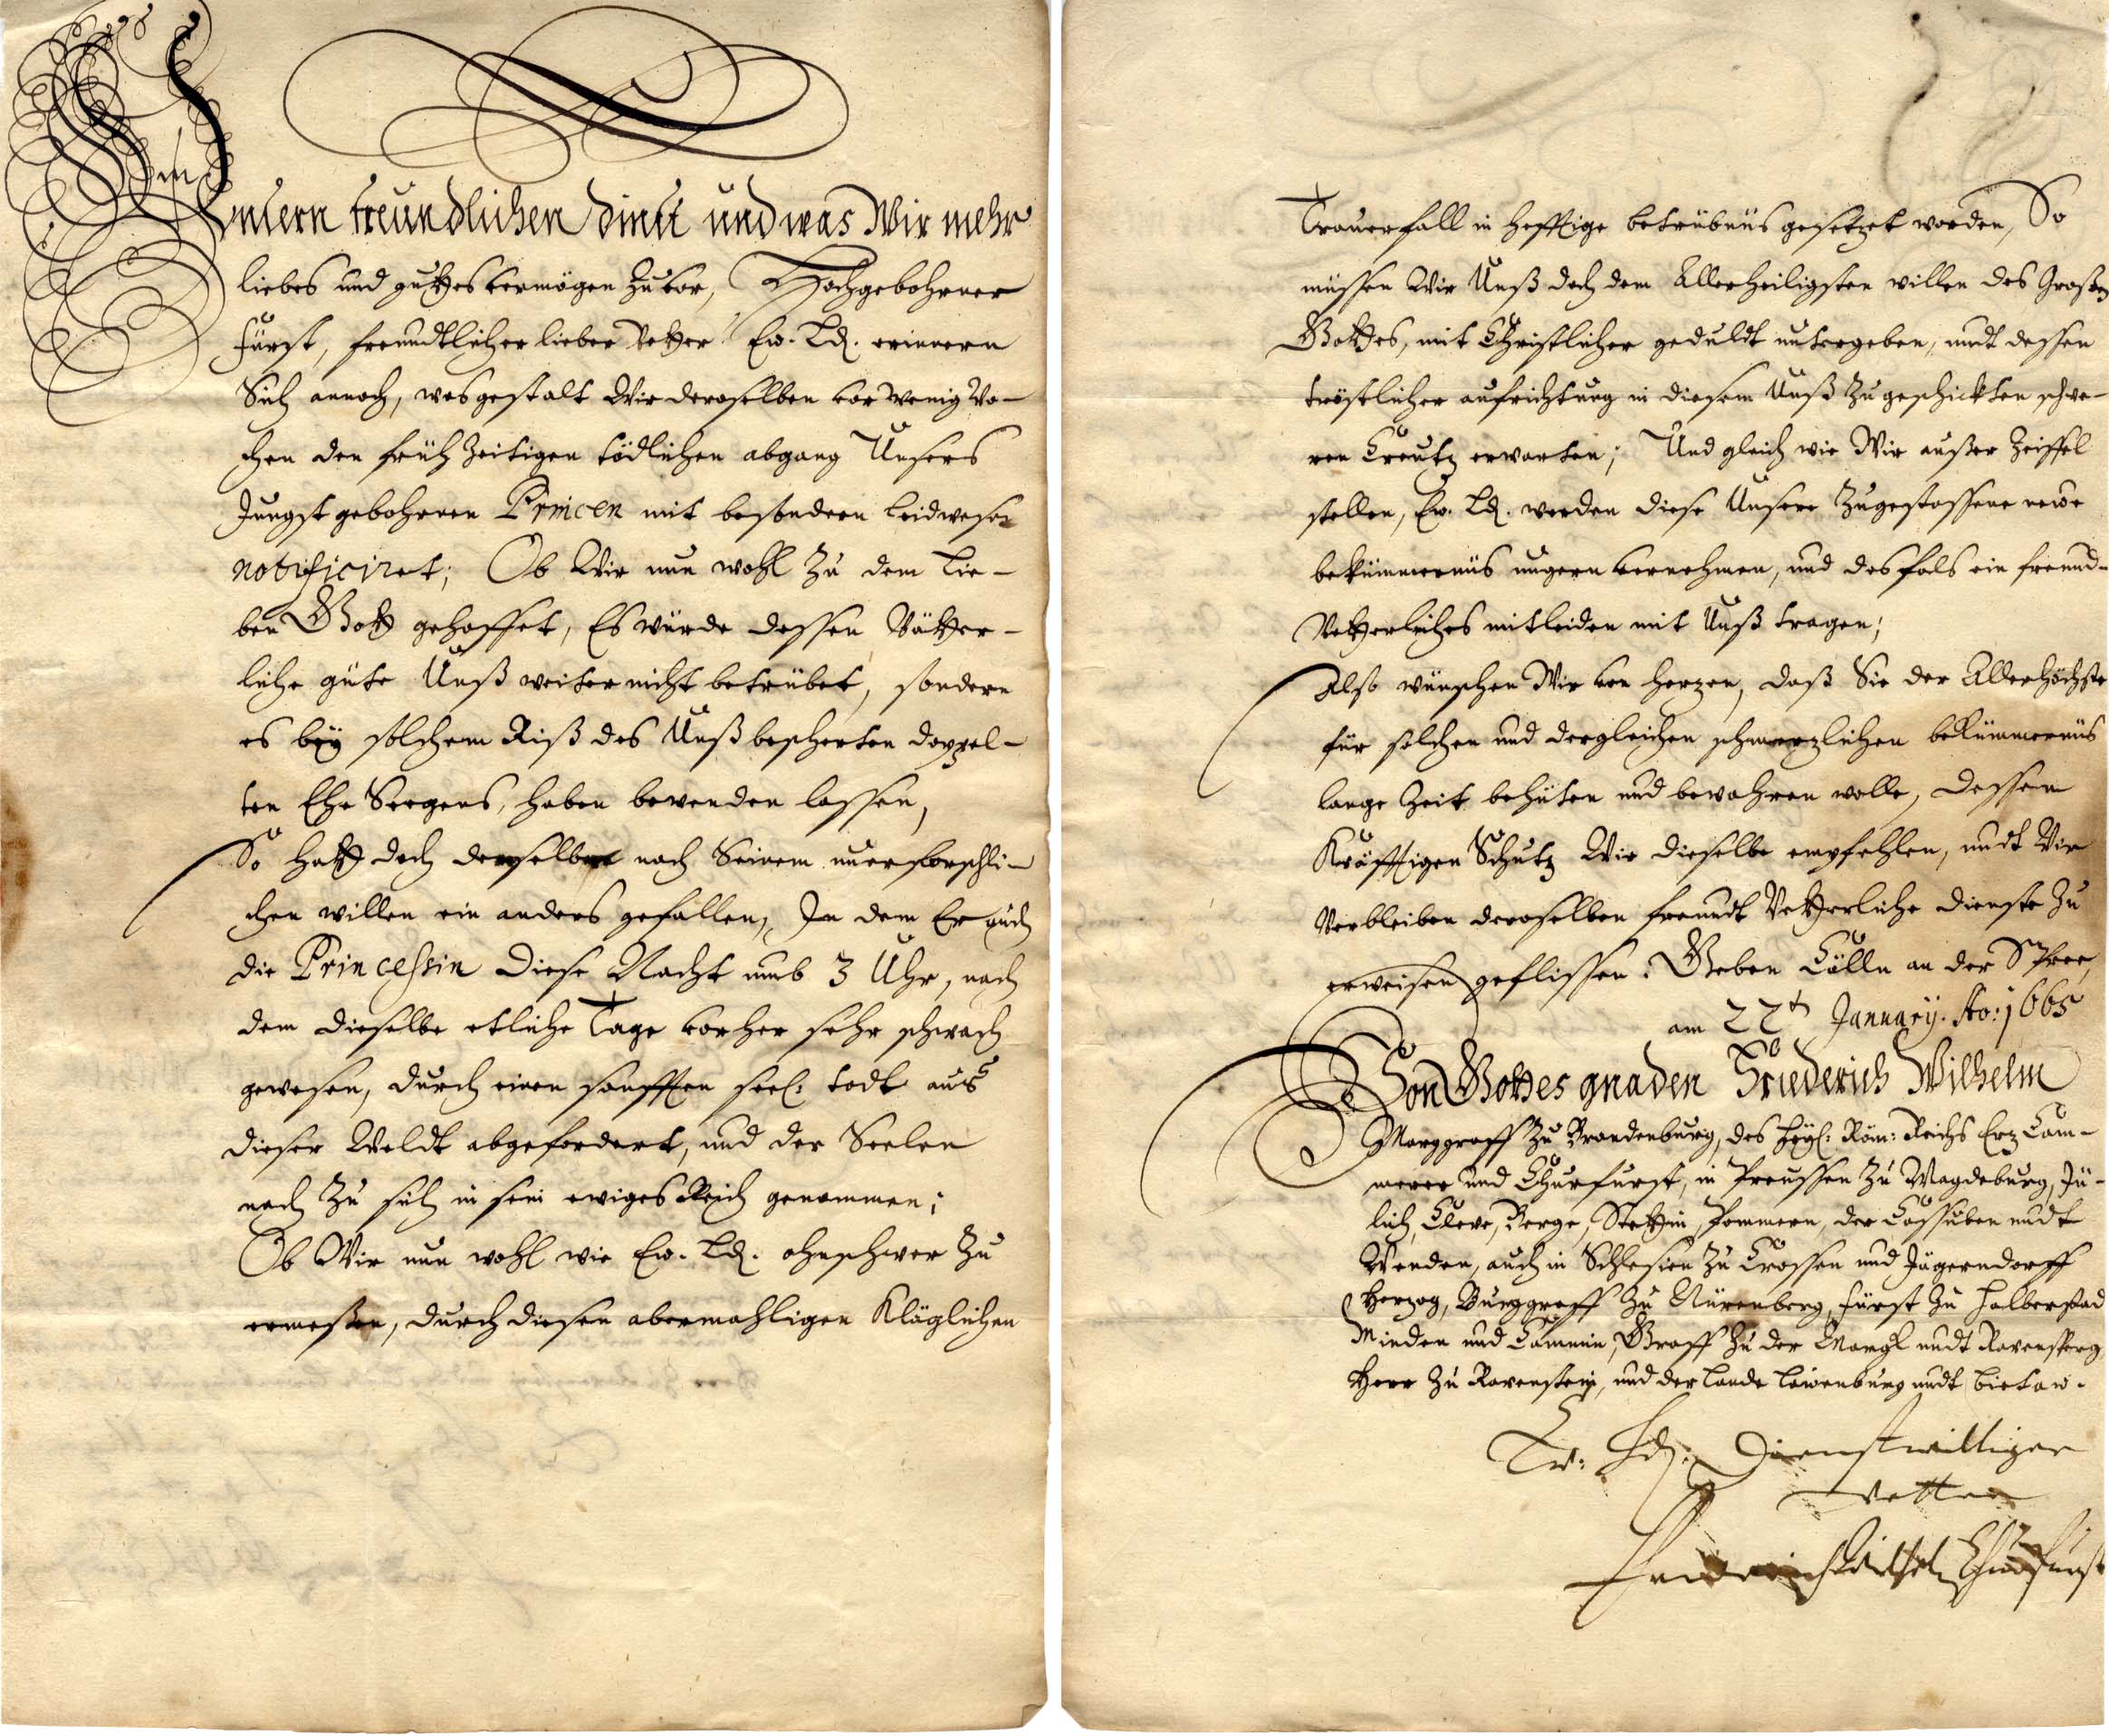 Unsern freundlichen dinst und was Wir mehr
liebes und guttes vermögen zuvor, Hochgebohrner
Fürst, freundtlicher lieber Vetter Ew. Ld. erinnern
Sich annoch, wesgestalt Wir deroselben vor wenig Wo-
chen den früh Zeitigen tödlichen abgang Unsers
Jungst gebohrnen Princen mit besondern leidwesen
notificiret; Ob Wir nun wohl zu dem Lie-
ben Gott gehoffet, Es würde dessen Vätter-
liche güte Unß weiter nicht betrübet, sondern
es bey solchem Riß des Unß bescherten doppel-
ten Ehe Seegens, haben bewenden lassen,
So hatt doch demselben nach Seinem unerforschli-
chen willen ein anders gefallen, In dem Er auch
die Princessin diese Nacht umb 3 Uhr, nach
dem dieselbe etliche Tage vorher sehr schwach
gewesen, durch einen sanfften seel. todt aus
dieser Weldt abgefordert, und der Seelen
nach zu sich in sein ewiges Reich genommen;
Ob Wir nun wohl wie Ew. Ld. ohnschwer zu
ermeßen, durch diesen abermahligen Kläglichen
Trauerfall in hefftige betrübnüs gesetzet worden, So
müssen Wir Unß doch dem Allerheiligsten willen des Großen
Gottes, mit Christlicher geduldt untergeben, undt dessen
tröstlicher aufrichtung in diesem Unß zugeschickten schwe-
ren Creutz erwarten; Und gleich wie Wir außer Zeiffel
stellen, Ew. Ld. werden diese Unsere zugestossene newe
bekümmernüs ungern vernehmen, und desfals ein freund-
Vetterliches mitleiden mit Unß tragen;
Also wünschen Wir von hertzen, daß Sie der Allerhöchste
für solchen und dergleichen schmertzlichen bekümmernüs
lange Zeit behüten und bewahren wolle, dessem
Kräfftigen Schutz Wir dieselbe empfehlen, undt Wir
Verbleiben deroselben freundt Vetterliche dienste zu
erweisen geflissen. Geben Cölln an der Spree,
am 22t January. Ao: 1665
Von Gottes gnaden Friederich Wilhelm
Marggraff zu Brandenburg, des heyl: Röm: Reichs Ertz Cäm-
merer und Churfürst, in Preussen zu Magdeburg, Jü-
lich, Cleve, Berge, Stettin, Pommern, der Cassuben undt
Wenden, auch in Schlesien zu Crossen und Jägerndorff
Hertzog, Burggraff zu Nürenberg, Fürst zu Halberstad
Minden und Cammin, Graff zu der Marck undt Ravensperg
Herr zu Ravenstein, und der Lande Lawenburg undt Bütaw.
Ew: Ld: Dienstwilliger
Vetter
Friderich Wilhelm Churfürst